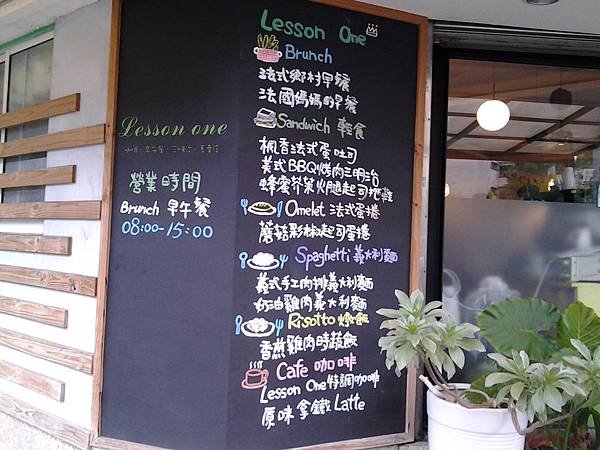 Lesson one
營業時間
Brunch 早午餐
08:00-15:00
Lesson One
Brunch
法式鄉村早餐
法國媽媽的早餐
Sandwich 輕食
楓香法式蛋吐司
美式BBQ烤肉三明治
蜂蜜芥茉火腿起司拖鞋
Omelet 法式蛋捲
蘑菇彩椒起司蛋捲
Spaghetti 義大利麵
義式手工肉排義大利麵
奶油雞肉義大利麵
Risotto 燉飯
香煎雞肉時蔬飯
Cafe 咖啡
Lesson One特調咖啡
原味拿鐵Latte